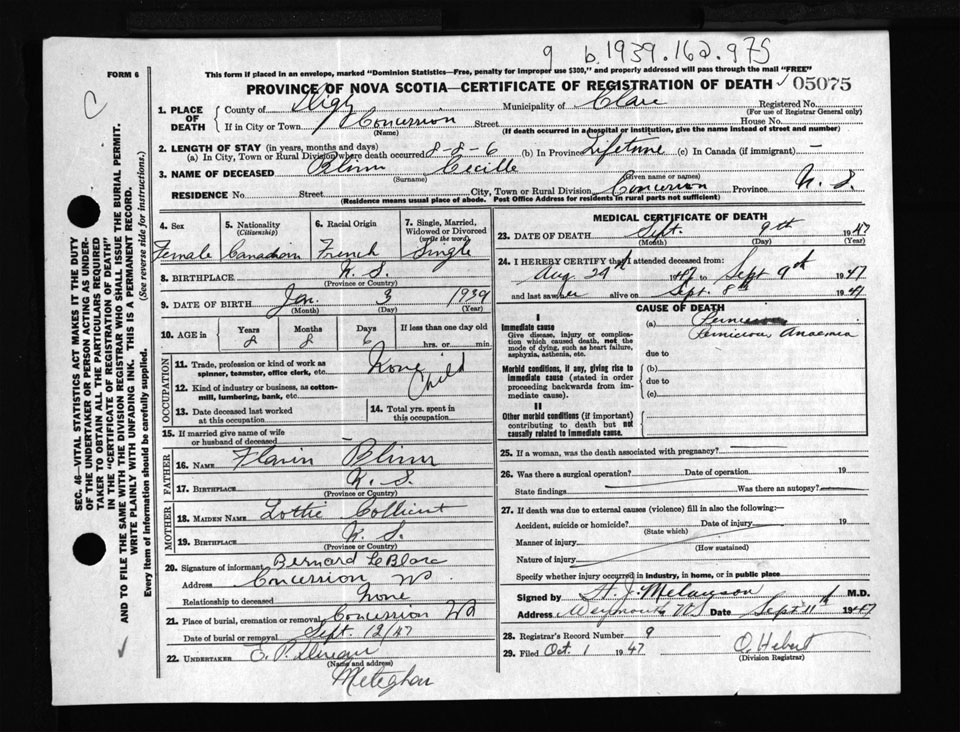 9 b.1939.162.975
FORM 6
This form if placed in an envelope, marked "Dominion Statistics—Free, penalty for improper use $300," and properly addressed will pass through the mail "FREE"
PROVINCE OF NOVA SCOTIA—CERTIFICATE OF REGISTRATION OF DEATH 05075
C
SEC. 46—VITAL STATISTICS ACT MAKES IT THE DUTY
OF THE UNDERTAKER OR PERSON ACTING AS UNDER-
TAKER TO OBTAIN ALL THE PARTICULARS REQUIRED
IN THE "CERTIFICATE OF REGISTRATION OF DEATH"
AND TO FILE THE SAME WITH THE DIVISION REGISTRAR WHO SHALL ISSUE THE BURIAL PERMIT.
WRITE PLAINLY WITH UNFADING INK. THIS IS A PERMANENT RECORD.
Every item of Information should be carefully supplied. (See reverse side for instructions.)
1. PLACE OF DEATH
County of Digby Municipality of Clare Registered No.
(For use of Registrar General only)
If in City or Town Concession Street House No.
(Name) (If death occurred in a hospital or institution, give the name instead of street and number)
2. LENGTH OF STAY (in years, months and days)
(a) In City, Town or Rural Division where death occurred 8-8-6 (b) In Province Lifetime (c) In Canada (if immigrant) —
3. NAME OF DECEASED Blinn Cecille
(Surname) (Given name or names)
RESIDENCE No. Street City, Town or Rural Division Concession Province N. S.
(Residence means usual place of abode. Post Office Address for residents in rural parts not sufficient)
4. Sex Female
5. Nationality (Citizenship) Canadian
6. Racial Origin French
7. Single, Married, Widowed or Divorced (write the word) Single
8. BIRTHPLACE N. S.
(Province or Country)
9. DATE OF BIRTH Jan. 3 1939
(Month) (Day) (Year)
10. AGE in Years Months Days If less than one day old
8 8 6 hrs. or min.
OCCUPATION
11. Trade, profession or kind of work as spinner, teamster, office clerk, etc. None
12. Kind of industry or business, as cotton-mill, lumbering, bank, etc. Child
13. Date deceased last worked at this occupation
14. Total yrs. spent in this occupation
15. If married give name of wife or husband of deceased —
FATHER
16. NAME Flavin Blinn
17. BIRTHPLACE N. S.
(Province or Country)
MOTHER
18. MAIDEN NAME Lottie
19. BIRTHPLACE N. S.
(Province or Country)
20. Signature of informant Bernard LeBlanc
Address Concession NS
Relationship to deceased None
21. Place of burial, cremation or removal Concession NS
Date of burial or removal Sept. 12/47
22. UNDERTAKER
(Name and address)
Meteghan
MEDICAL CERTIFICATE OF DEATH
23. DATE OF DEATH Sept. 9th 1947
(Month) (Day) (Year)
24. I HEREBY CERTIFY that I attended deceased from:
Aug 29th 1947 to Sept 9th 1947
and last saw her alive on Sept. 8th 1947
CAUSE OF DEATH
I
Immediate cause
Give disease, injury or complication which caused death, not the mode of dying, such as heart failure, asphyxia, asthenia, etc.
(a) Pernicious Anaemia
due to
Morbid conditions, if any, giving rise to immediate cause (stated in order proceeding backwards from immediate cause).
(b)
due to
(c)
II
Other morbid conditions (if important) contributing to death but not causally related to immediate cause.
25. If a woman, was the death associated with pregnancy?
26. Was there a surgical operation? Date of operation 19
State findings Was there an autopsy?
27. If death was due to external causes (violence) fill in also the following:—
Accident, suicide or homicide? Date of injury 19
(State which)
Manner of injury
(How sustained)
Nature of injury
Specify whether injury occurred in industry, in home, or in public place
Signed by H. J. Melanson M.D.
Address Weymouth NS Date Sept 11th 1947
28. Registrar's Record Number 9
29. Filed Oct. 1 1947 O. Hebert
(Division Registrar)